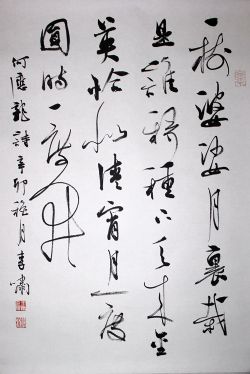 一樹婆娑月裏栽
是誰移種下天来金
英恰似清宵月一度
圓時一度開
何應龍詩辛卯月李嘯